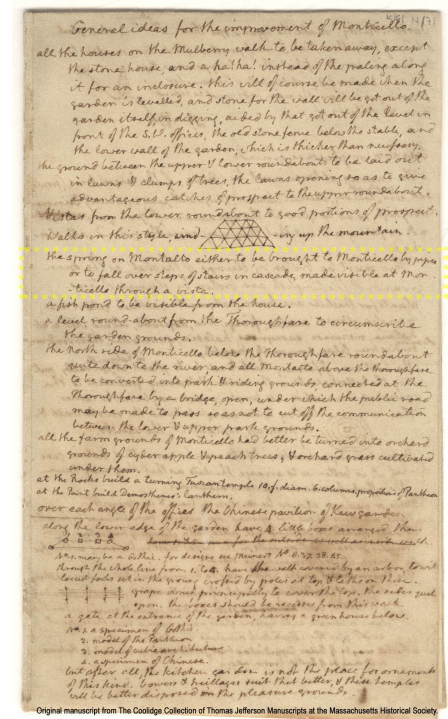 General ideas for the improvement of Monticello
all the houses on the Mulberry walk to be taken away, except
the stone house, and a ha! ha! instead of the paling along
it for an inclosure. this will of course be made when the
garden is levelled, and stone for the wall will be got out of the
garden itself in digging, aided by that got out of the level in
front of the S.W. offices, the old stone fence below the stable, and
the lower wall of the garden, which is thicker than necessary.
the ground between the upper & lower roundabouts to be laid out
in lawns & clumps of trees, the lawns opening so as to give
advantageous catches of prospect to the upper roundabout.
Vistas from the lower roundabout to good portions of prospect.
walks in this style, wind-ing up the mountain
the spring on Montalto either to be brought to Monticello by pipes
or to fall over steps of stairs in cascade, made visible at Mon-
ticello through a vista.
a fish pond to be visible from the house.
a level round-about from the Thoroughfare to circumscribe
the garden grounds.
the north side of Monticello below the Thoroughfare roundabout
quite down to the river, and all Montalto above the thoroughfare
to be converted into park & riding grounds, connected at the
Thoroughfare by a bridge, open, under which the public road
may be made to pass so as not to cut off the communication
between the lower & upper park grounds.
all the farm grounds of Monticello had better be turned into orchard
grounds of cyder apple & peach trees, & orchard grass cultivated
under them.
at the Rocks build a turning Tuscan temple 10.f. diam. 6. columns, proportions of Pantheon
at the Point build Demosthenes's Lanthern.
over each angle of the offices the Chinese pavilion of Kew garden.
along the lower edge of the garden have 4. little boxes arranged thus
No. 1. may be a Gothic. for designs see
through the whole line from 1. to 4. have the wall covered by an arbor, to wit
locust forks set in the ground crossed by poles at top & lathes on these.
grape vines principally to cover the top. the sides quite
open. the boxes should be recesses from this each
a gate at the entrance of the garden, having a green house below.
No. 1. a specimen of Gothic
2. model of the Pantheon
3. model of cubic architecture
4. a specimen of Chinese.
but after all the kitchen garden is not the place for ornaments
of this kind. bowers & treillages suit that better, & these temples
will be better disposed on the pleasure grounds.
Original manuscript from The Coolidge Collection of Thomas Jefferson Manuscripts at the Massachusetts Historical Society.